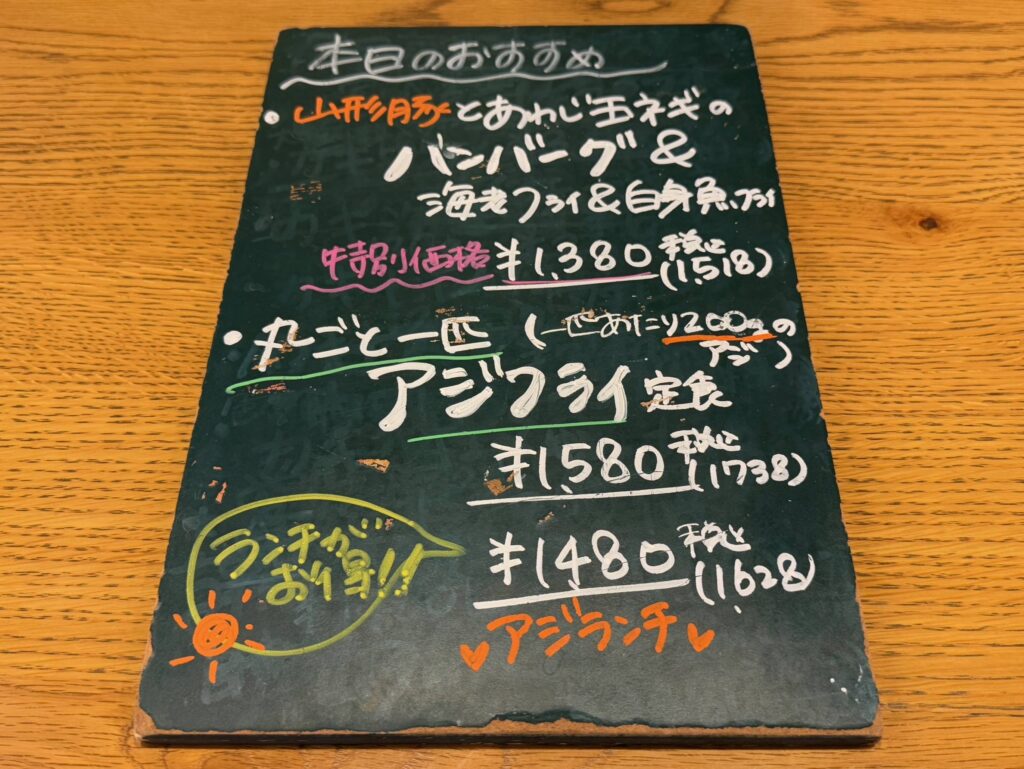 本日のおすすめ
・山形豚とあわじ玉ネギの
ハンバーグ&
海老フライ&白身魚フライ
特別価格 ¥1,380 税込(1,518)
・丸ごと一匹(一匹あたり200gのアジ)
アジフライ定食
¥1,580 税込(1738)
ランチがお得!!
¥1480 税込(1,628)
アジランチ